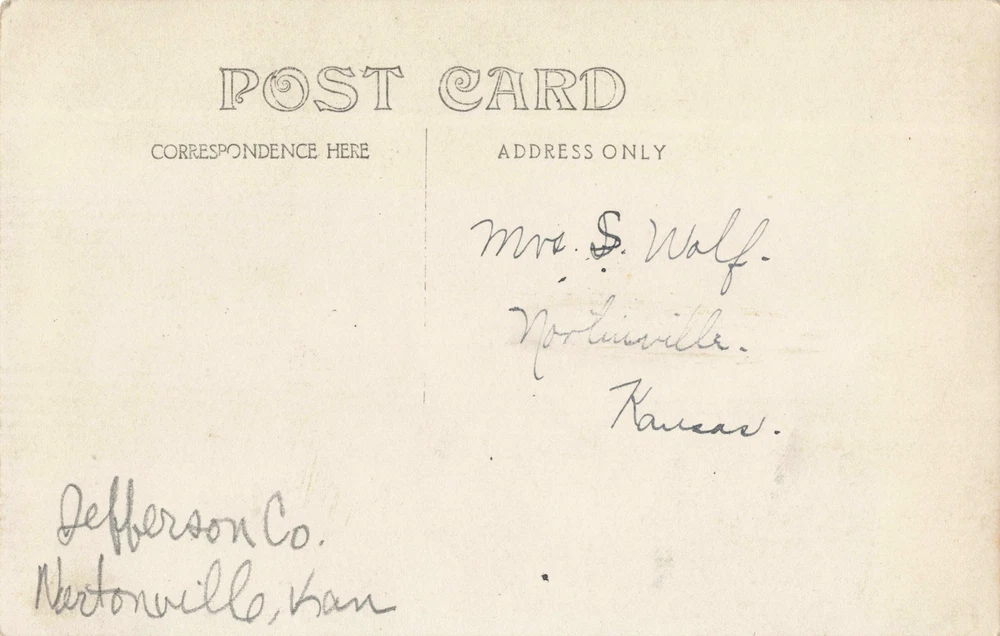 POST CARD
CORRESPONDENCE HERE
ADDRESS ONLY
Mrs. S. Wolf.
Nortinville.
Kansas.
Jefferson Co.
Nortonville, Kan